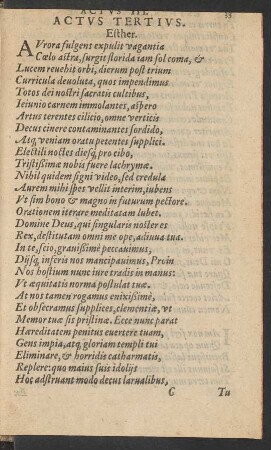 ACTVS III.
33
ACTVS TERTIVS.
Esther.
AVrora fulgens expulit vagantia
Cælo astra, surgit florida iam sol coma, &
Lucem reuehit orbi, dierum post trium
Curricula deuoluta, quos impendimus
Totos dei nostri sacratis cultibus,
Ieiunio carnem immolantes, aspero
Artus terentes cilicio, omne verticis
Decus cinere contaminantes sordido,
Atq; veniam oratu petentes supplici.
Electili noctes diesq; pro cibo,
Tristißimæ nobis fuere lachrymæ.
Nihil quidem signi video, sed credula
Aurem mihi spes vellit interim, iubens
Vt sim bono & magno in futurum pectore.
Orationem iterare meditatam lubet.
Domine Deus, qui singularis noster es
Rex, destitutam omni me ope, adiuua tua.
In te, scio, grauißimè peccauimus,
Dijsq; inferis nos mancipauimus, Proin
Nos hostium nunc iure tradis in manus:
Vt æquitatis norma postulat tuæ.
At nos tamen rogamus enixißimè,
Et obsecramus supplices, clementiæ, vt
Memor tuæ sis pristinæ. Ecce nunc parat
Hæreditatem penitus euertere tuam,
Gens impia, atq; gloriam templi tui
Eliminare, & horridis catharmatis,
Replere: quo maius suis idolis
Hoc adstruant modo decus larualibus,
C
Tu